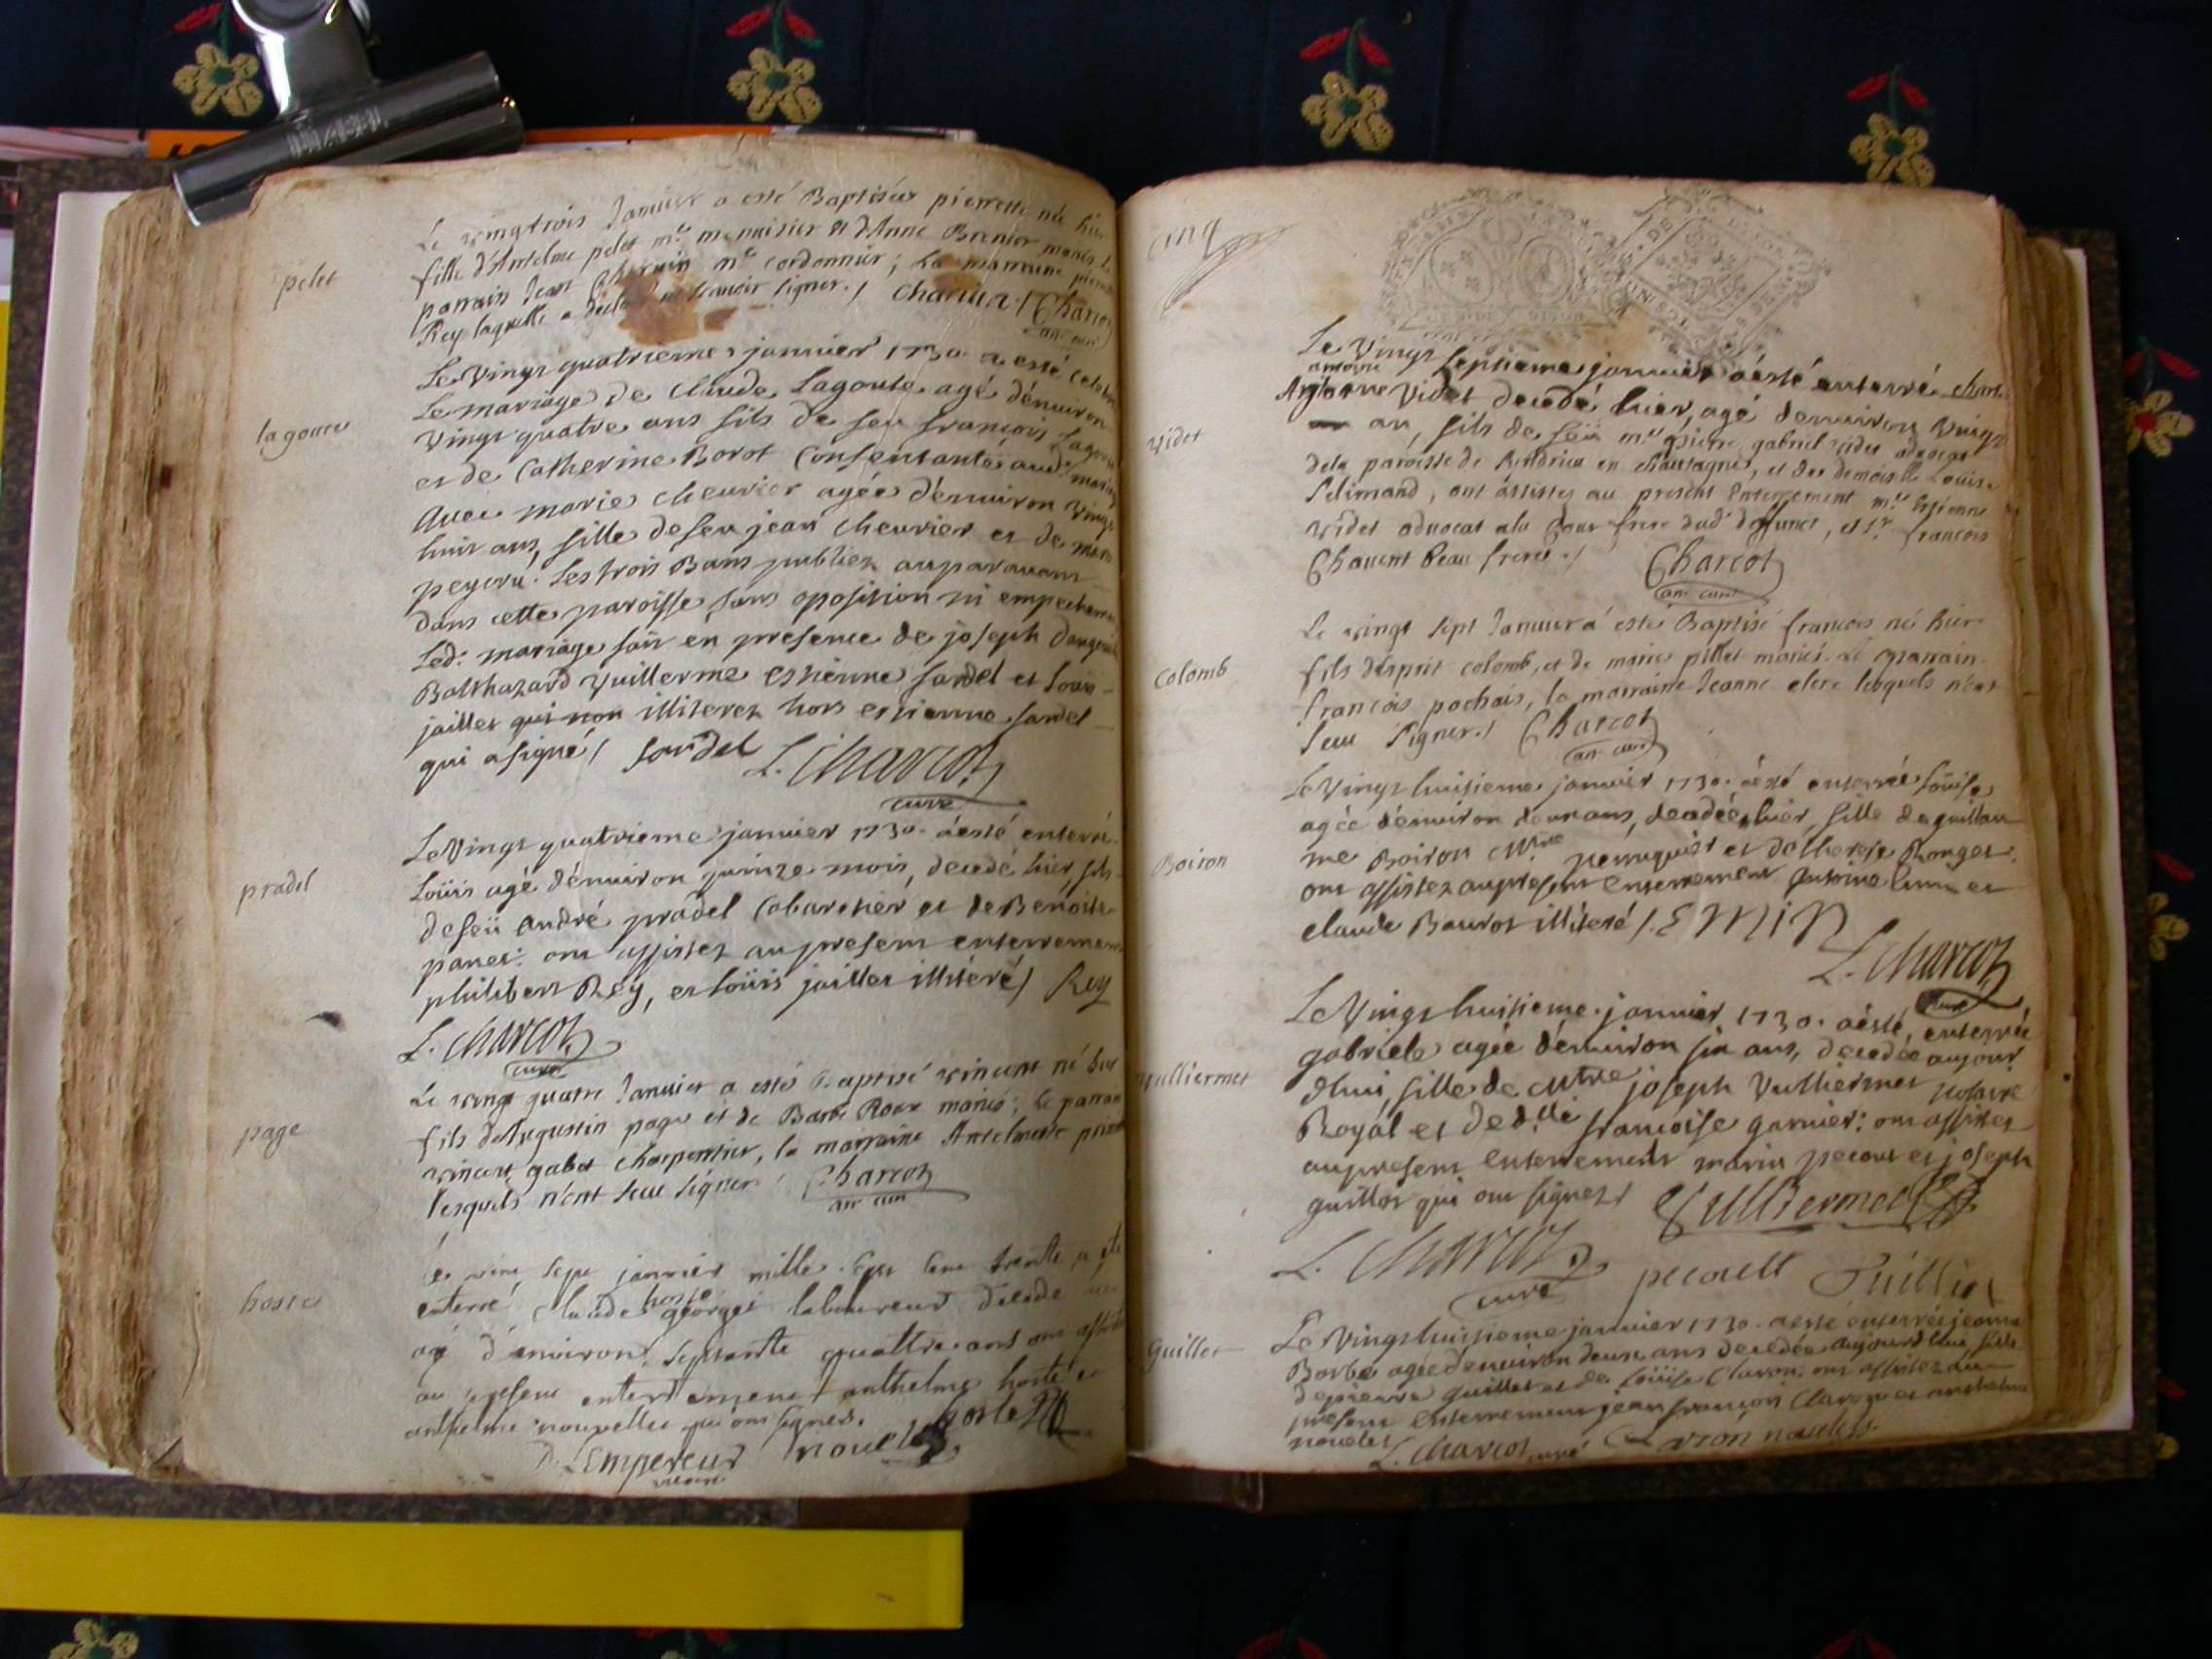 pelet
Le vingtrois Janvier a esté Baptisée pierrette née hier
fille d'Antelme pelet m.e menuisier et d'Anne Brenier mariés Le
parrain Jean m.e cordonnier; La marraine
Rey laquelle a declaré ne scavoir signer./ Charcot
an: curé
lagoute
Le Vingt quatrieme janvier 1730 a esté
Le mariage de Claude Lagoute agé dénviron
vingt quatre ans fils de feu françois
et de Catherine Borot Consentante aud. mariage
Avec marie cheuvrier agée dénviron vingt
huit ans, fille de feu jean cheuvrier et de
Les trois Bans publiez auparavant
dans cette paroisse sans oposition ni empechemen
Led: mariage fait en presence de joseph
Balthazard Vuillerme estienne sardel et Loüis
jaillet qui non illiterez hors estienne sardel
qui a signé/ sardel L. Charcot
curé
pradel
Le Vingt quatrieme janvier 1730. a esté enterré
Loüis agé dénviron quinze mois, decedé hier, fils
de feü André pradel Cabaretier et de Benoite
panet: ont assistez au present enterrement
philibert Rey, et Loüis jaillet illiteré/ Rey
L. Charcot
curé
page
Le vingt quatre Janvier a esté Baptisé vincent né hier
fils d'Augustin page et de Barbe Roux mariés; Le parrain
vincent gabet charpentier, la marraine Antelmette
lesquels n'ont sceu signer. Charcot
an: curé
hoste
Le vint sept janvier mille sept cent trente a été
hoste
enterré Claude georges laboureur decedé
agé d'environ septante quattre ans ont assisté
au present enterrement anthelme hoste et
anthelme nouvellet qui ont signés. hoste
D. Lempereur nouellet
vicaire
cinq
videt
Le Vingt septieme janvier a esté enterré
antoine
Antoine Videt decedé hier, agé denviron vingt
un an, fils de feü m.e pierre gabriel videt advocat
dela paroisse de en chautagne, et de demoiselle Louise
, ont assistez au present Enterrement m.e Estienne
videt advocat a la Cour frere dud. deffunct, et s.r françois
Chavent beau frere./ Charcot
an: curé
Colomb
Le vingt sept Janvier a esté Baptisé francois né hier
fils d'esprit colomb, et de marie pillet mariés. Le parrain
francois pochais, la marraine Jeanne clerc lesquels n'ont
sceu signer./ Charcot
an: curé
Boiron
Le Vingt huitieme janvier 1730. a esté enterrée Loüise
agée dénviron deux ans, decedée hier, fille de guillau
me Boiron Mtre perruquier et de therese Ronget.
ont assistez au present enterrement Antoine Emin et
claude Bourot illiteré/. EMIN
L. Charcot
curé
vulliermet
Le Vingt huitieme janvier 1730. a esté enterrée
gabriele agée dénviron six ans, decedée aujour
dhui, fille de Mtre joseph Vulliermet notaire
Royal et de d.lle françoise garnier: ont assistez
au present enterrement marin pecout et joseph
guillot qui ont signez/ Vulliermet
L. Charcot pecoult
curé
Guillet
Le Vingt huitieme janvier 1730. a esté enterrée jeanne
Barbe agée dénviron deux ans decedée aujourdhui fille
de pierre guillet et de Loüise Clavon; ont assistez au
present enterrement jean françois Clavon et anthelme
nouellet L. Charcot curé nouellet